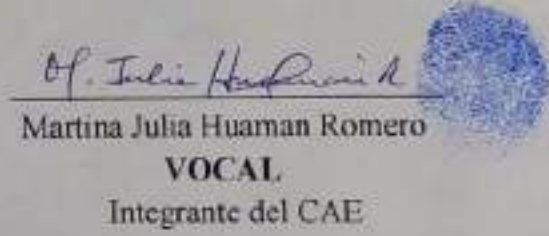 M. Julia Huamaní R
Martina Julia Huaman Romero
VOCAL
Integrante del CAE